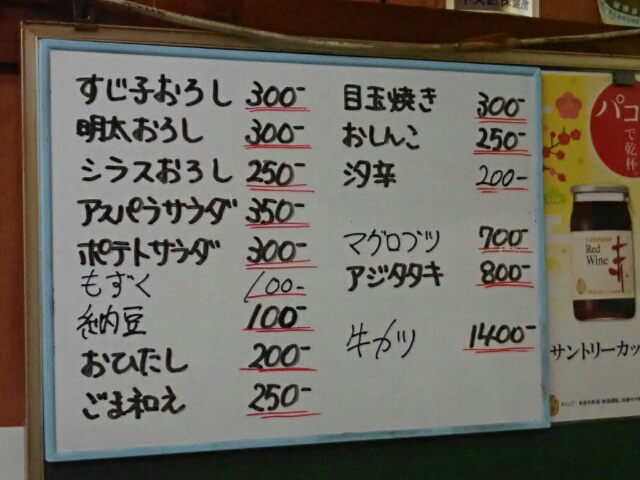 すじ子おろし 300-
明太おろし 300-
シラスおろし 250-
アスパラサラダ 350-
ポテトサラダ 300-
もずく 100-
納豆 100-
おひたし 200-
ごま和え 250-
目玉焼き 300-
おしんこ 250-
汐辛 200-
マグロブツ 700-
アジタタキ 800-
牛カツ 1400-
パコ
で乾杯
Red
Wine
赤
サントリーカッ